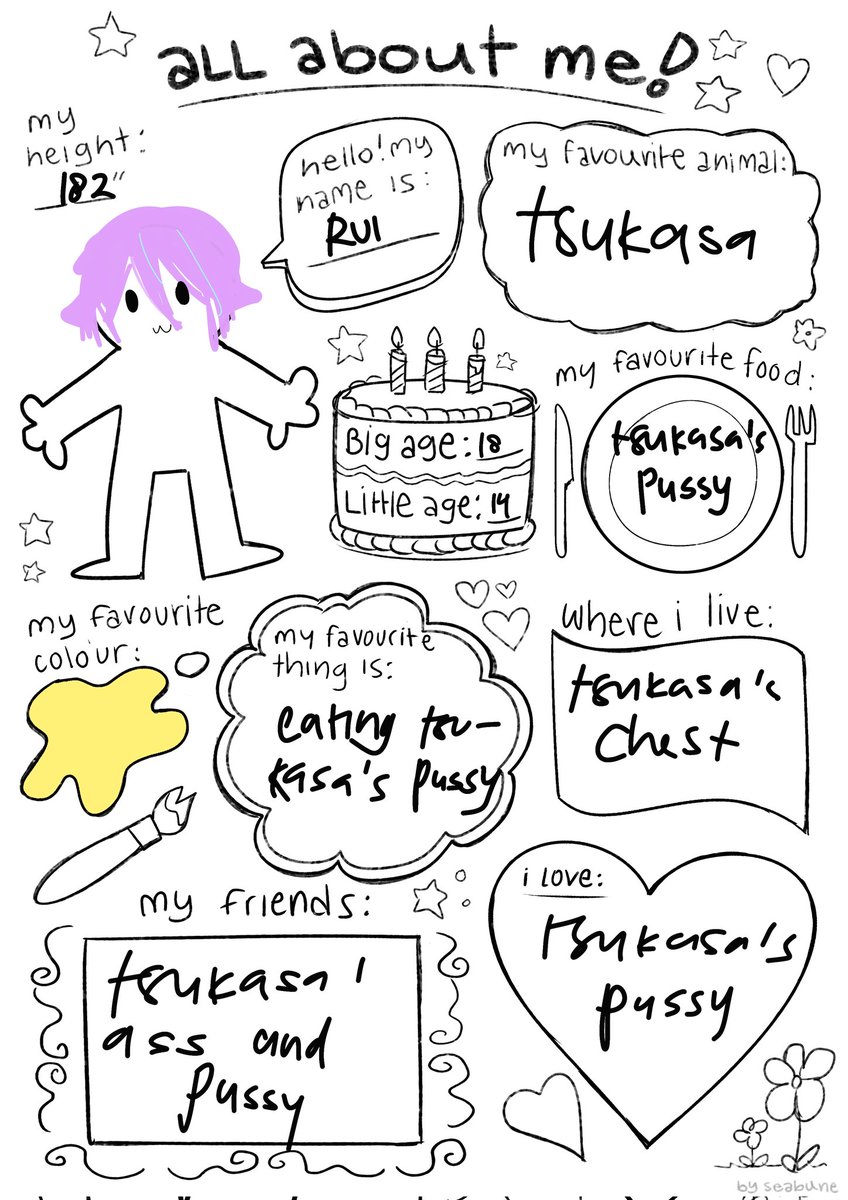 all about me!
my
height:
182"
hello! my
name is:
RUI
my favourite animal:
tsukasa
Big age: 18
Little age: 14
my favourite food:
tsukasa's
pussy
my favourite
colour:
my favourite
thing is:
eating tsu-
kasa's pussy
where i live:
tsukasa's
chest
my friends:
tsukasa'
ass and
pussy
i love:
tsukasa's
pussy
by seabune